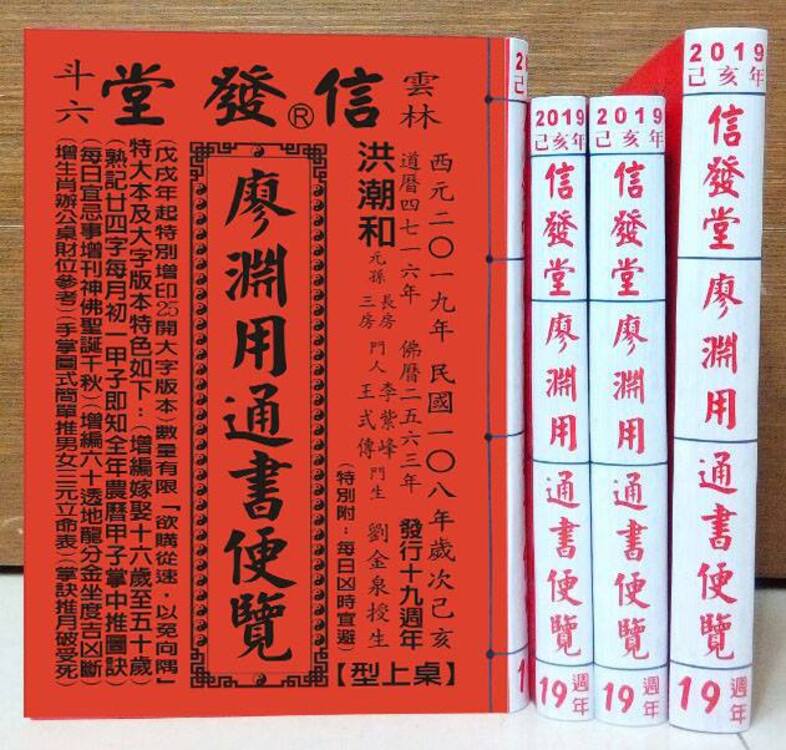 雲林
信發®堂
斗六
西元二〇一九年 民國一〇八年歲次己亥
道曆四七一六年 佛曆二五六三年 發行十九週年
洪潮和 元孫 長房 三房 門人 李紫峰 王式傳 門生 劉金泉授生
(特別附：每日凶時宜避)
【桌上型】
廖淵用通書便覽
(戊戌年起特別增印25開大字版本)數量有限「欲購從速，以免向隅」
特大本及大字版本特色如下：(增編嫁娶十六歲至五十歲)
(熟記廿四字每月初一甲子即知全年農曆甲子掌中推圖訣)
(每日宜忌事增刊神佛聖誕千秋)(增編六十透地龍分金坐度吉凶斷)
(增生肖辦公桌財位參考)(手掌圖式簡單推男女三元立命表)(掌訣推月破受死)
2
己
1
2019
己亥年
信發堂
廖淵用
通書便覽
19週年
2019
己亥年
信發堂
廖淵用
通書便覽
19週年
2019
己亥年
信發堂
廖淵用
通書便覽
19週年